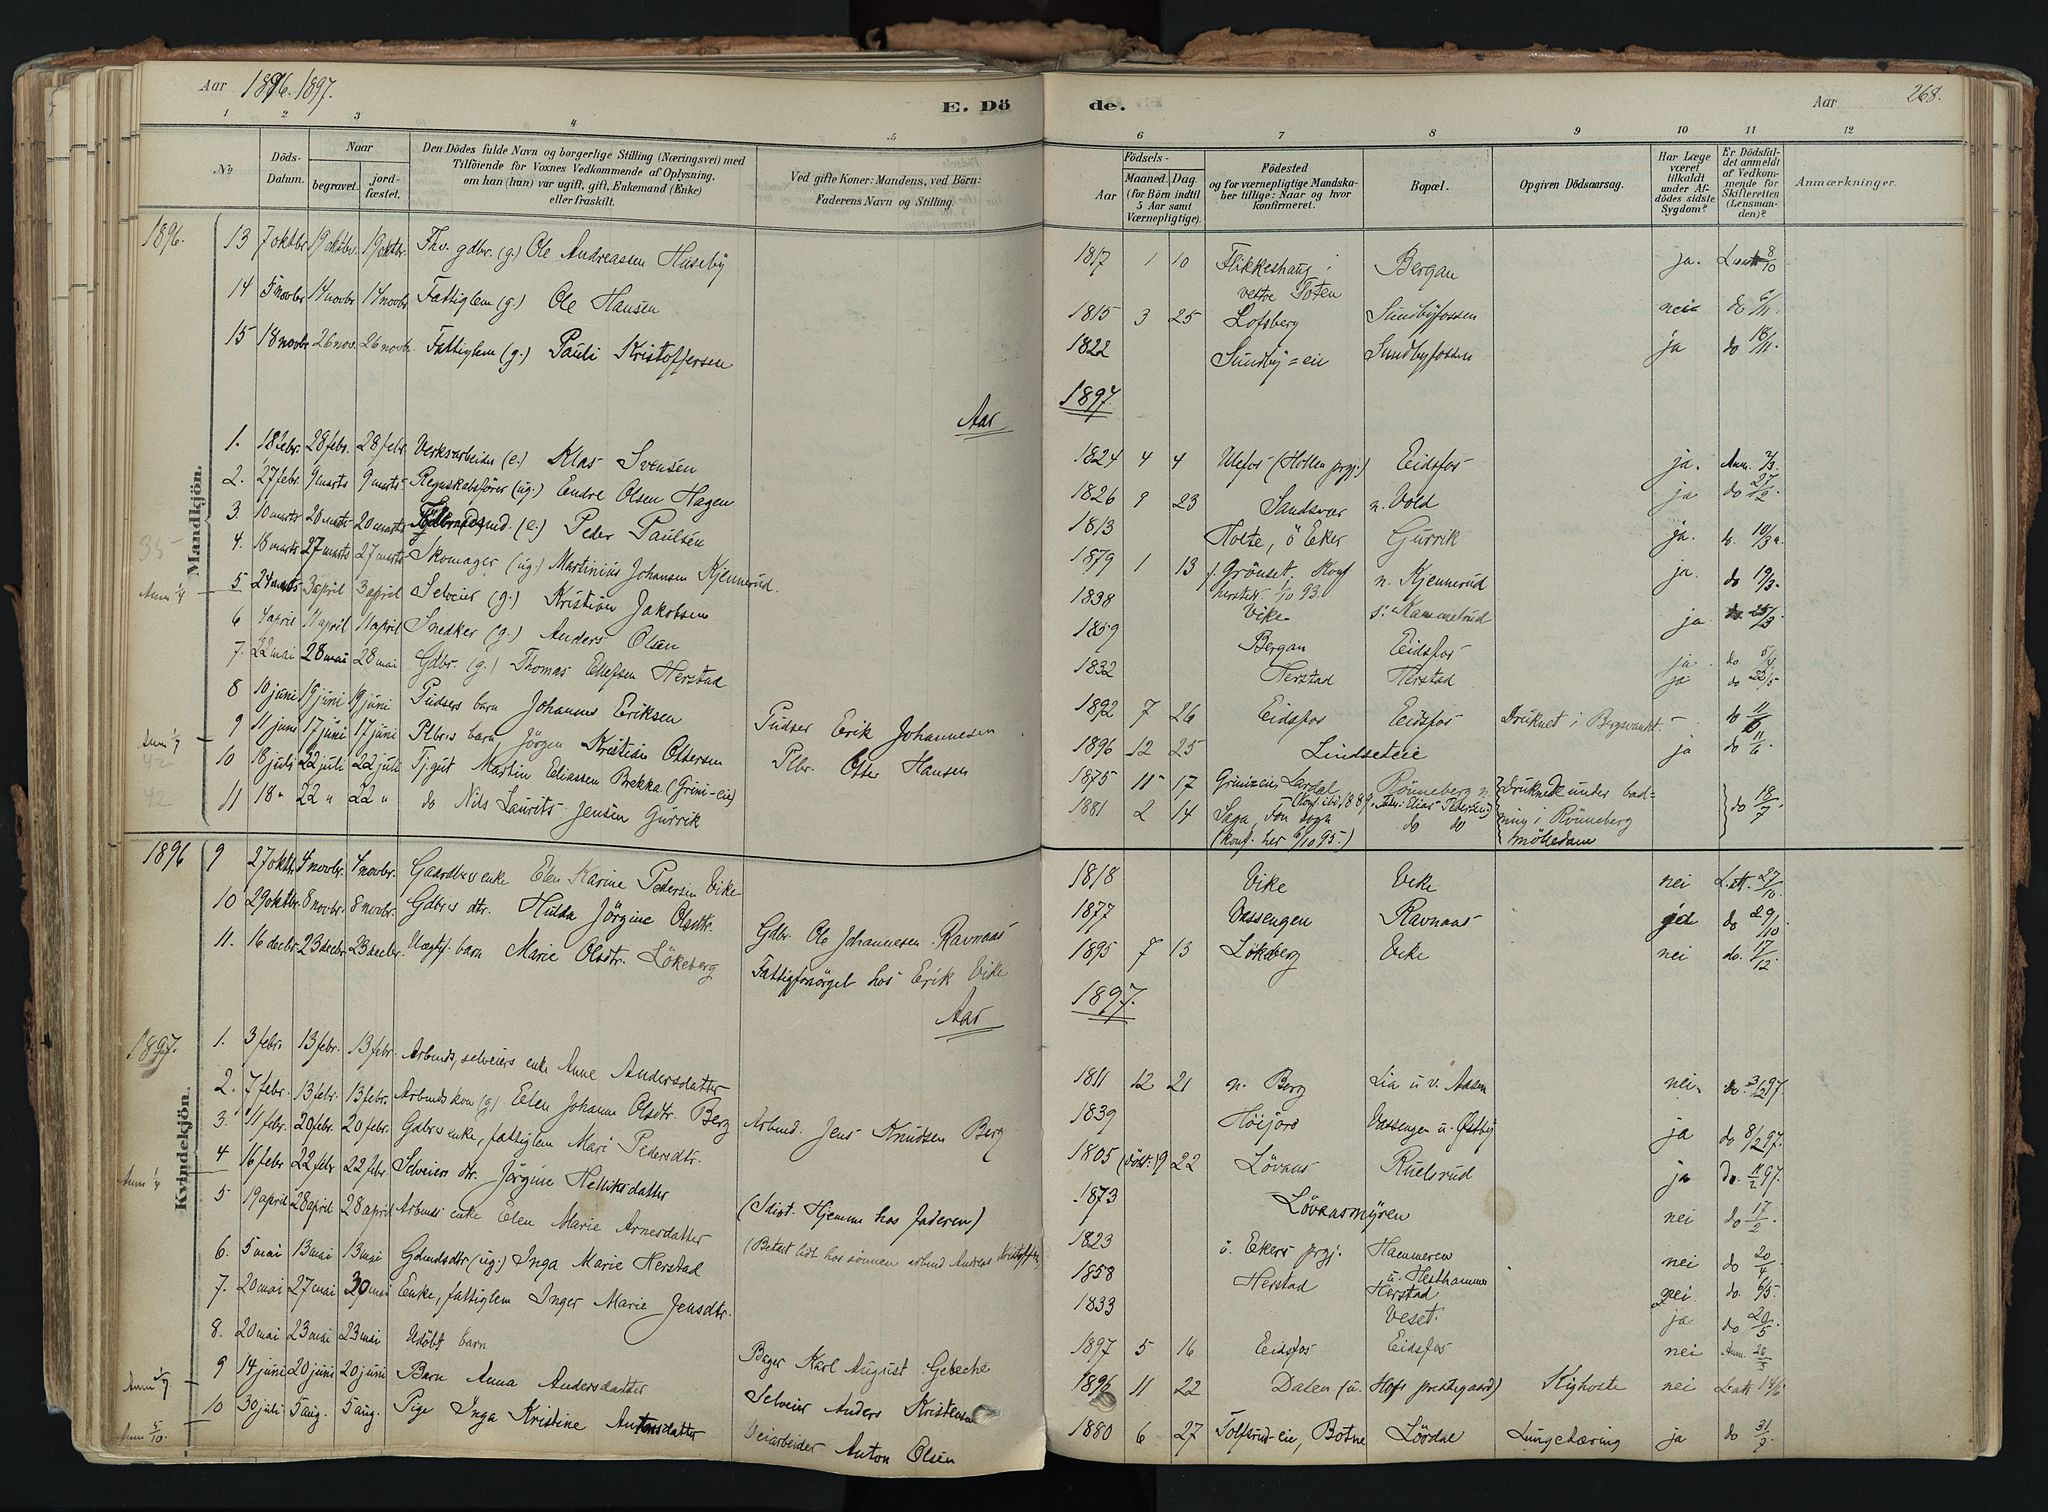 Aar 1896. 1897.
E. Dö de.
Aar 268.
1 2 3 4 5 6 7 8 9 10 11 12
No
Döds-Datum.
Naar
begravet.
jord-fæstet.
Den Dödes fulde Navn og borgerlige Stilling (Næringsvei) med
Tilföiende for Voxnes Vedkommende af Oplysning,
om han (han) var ugift, gift, Enkemand (Enke)
eller fraskilt.
Ved gifte Koner: Mandens, ved Börn:
Faderens Navn og Stilling.
Födsels-
Aar
Maaned. Dag.
(for Börn indtil
5 Aar samt
Værnepligtige).
Födested
og for værnepligtige Mandska-
ber tillige: Naar og hvor
konfirmeret.
Bopæl.
Opgiven Dödsaarsag.
Har Læge
været
tilkaldt
under Af-
dödes sidste
Sygdom?
Er Dödsfal-
det anmeldt
af Vedkom-
mende for
Skifteretten
(Lensman-
den)?
Anmærkninger.
Mandkjön.
1896. 13 7 oktbr. 19 oktbr. 19 oktbr. Fhv. gdbr. (g.) Ole Andreassen Huseby 1817 1 10 Flikkeshaug i vestre Toten Bergan ja. 8/10
14 5 novbr 14 novbr 14 novbr Fattiglem (g.) Ole Hansen 1815 3 25 Lofsberg Sundbyfossen nei do 6/11.
15 18 novbr 26 nov. 26 novbr. Fattiglem (g.) Pauli Kristoffersen 1822 Sundby=eie Sundbyfossen ja do 18/11.
Aar 1897.
1. 18 febr. 28 febr. 28 febr. Verksarbeider (e.) Klas Svensen 1824 4 4 Ulefos (Hollen prgj.) Eidsfos ja. Anm. 2/3.
2. 27 febr. 9 marts 9 marts Regnskabsförer (ug.) Endre Olsen Hagen 1826 9 23 Sandsvær n. Vold ja do 27/2.
3. 10 marts 20 marts 20 marts (e.) Peder Paulsen 1813 Holte, ö Eker Gurrik ja. do. 10/3
4. 18 marts 27 marts 27 marts Skomager (ug.) Martinius Johansen Kjennerud. 1879 1 13 f. Grönset. Konf herstds. 1/10 93. n. Kjennerud ja do 19/3.
Anm 1/4 5 24 marts 3 april 3 april Selveier (g.) Kristian Jakobsen 1838 Vike s. Kammelrud ja 25/3
6 4 april 11 april 11 april Snedker (g.) Anders Olsen 1859 Bergan Eidsfos ja do 5/4.
7. 22 mai 28 mai 28 mai Gdbr. (g.) Thomas Ellefsen Herstad 1832 Herstad Herstad ja do 22/5
8 10 juni 19 juni 19 juni Pudsers barn Johannes Eriksen Pudser Erik Johannesen 1892 7 26 Eidsfos Eidsfos Druknet i Bergsvandet. - do 11/6
9 11 juni 17 juni 17 juni Plbr.s barn Jörgen Kristian Ottersen Plbr. Otter Hansen 1896 12 25 Lindseteie ja do 11/6.
Anm 1/7
10 18 juli 22 juli 22 juli Tj.gut Martin Eliassen Brekka (Grini-eie) 1875 11 17 Grinieie Lardal (Konf. ibi. 1889. Far: Elias Pedersen) Rönneberg n. druknede under bad- do 18/7.
11 18 " 22 " 22 " do Nils Laurits Jensen Gurrik 1881 2 14 Saga, Fon sogn (konf. her 6/10 95.) do do ning i Rönneberg mölledam
Kvindekjön.
1896 9 27 oktbr. 4 novbr. 4 novbr. Gaardbr enke Elen Karine Pedersen Vike 1818 Vike Vike nei L.att. 27/10.
10 29 oktbr. 8 novbr. 8 novbr. Gdbr.s dtr. Hulda Jörgine Olsdtr. Gdbr. Ole Johannesen Ravnaas 1877 Vassengen Ravnaas ja do 29/10
11. 16 decbr 23 decbr 23 decbr. Uægtf. barn Marie Olsdtr. Lökeberg Fattigforsörget hos Erik Vike 1895 7 13 Lökeberg Vike nei do. 17/12.
Aar 1897.
1897. 1. 3 febr. 13 febr. 13 febr. Arbmds, selveiers enke Anne Andersdatter 1811 12 21 n. Berg Lia u. v. Aasen nei. do. 3/2 97.
2. 7 febr. 13 febr. 13 febr. Arbmds kon (g) Elen Johanne Olsdtr. Berg Arbmd. Jens Knudsen Berg 1839 Höijord Vassengen u. Østby ja do 8/2 97.
3. 11 febr. 20 febr. 20 febr. Gdbr.s enke, fattiglem Mari Pedersdtr. 1805 (döbt:) 9 22 Lövaas Ruelsrud ja Do. 11/2 97.
4 16 febr 22 febr 22 febr. Selveiers dtr. Jörgine Helliksdatter (Idiot. Hjemme hos faderen) 1873 Lövaasmyren nei do 17/2.
5 19 april 28 april 28 april Arbmds enke Elen Marie Arnesdatter (Betalt lidt hos sönnen arbmd Andreas Kristoffer) 1823 ö. Ekers prgj. Hammeren u. Hesthammer nei do 20/4
6. 5 mai 13 mai 13 mai Gdmdsdtr (ug.) Inga Marie Herstad 1858 Herstad Herstad nei do. 6/5.
7. 20 mai 27 mai 30 mai Enke, fattiglem Inger Marie Jensdtr. 1833 Veset. ja do 20/5
8. 20 mai 23 mai 23 mai Udöbt barn Bager Karl August Gebeche 1897 5 16 Eidsfos Eidsfos nei Anm. 20/5
Anm 1/7. 9 14 juni 20 juni 20 juni Barn Anna Andersdatter Selveier Anders Kristensen 1896 11 22 Dalen (u. Hofs prestegaard) Kighoste nei L.att 14/6
Anm 5/10. 10 30 juli 5 aug. 5 aug. Pige Inga Kristine Antonsdatter Veiarbeider Anton Olsen 1880 6 27 Tolfsrud-eie, Botne Lördal Lungetæring ja do 31/7